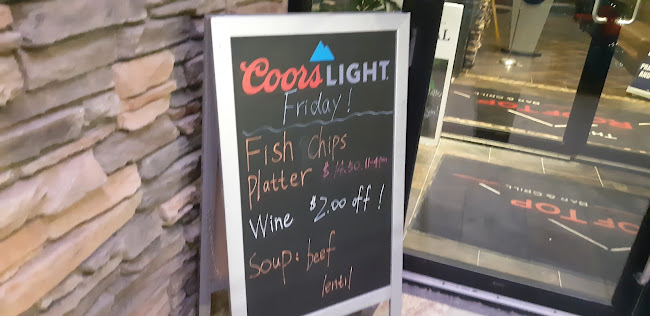 Coors LIGHT
Friday!
Fish Chips
Platter
Wine $2.00 off!
Soup: beef
lentil
ROOFTOP
BAR & GRILL
OF TOP
BAR & GRILL